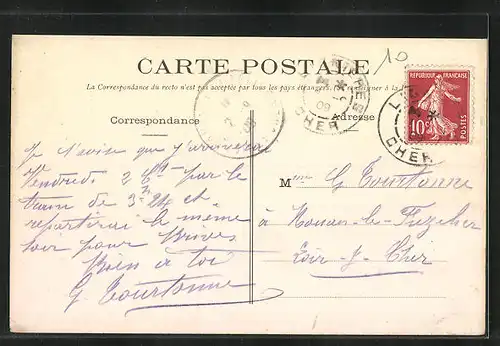 10
CARTE POSTALE
La Correspondance du recto n'est pas acceptée par tous les pays étrangers.
Correspondance
Adresse
RÉPUBLIQUE FRANÇAISE
10c
POSTES
CHER
CHER
Je t'avise que j'arriverai
Vendredi 2 ct par le
train de 3h24 et
repartirai le même
soir pour Brives
Bien à toi
G. Tourtonne
Mme G Tourtonne
à Nouan-le-Fuzelier
Loir-&-Cher